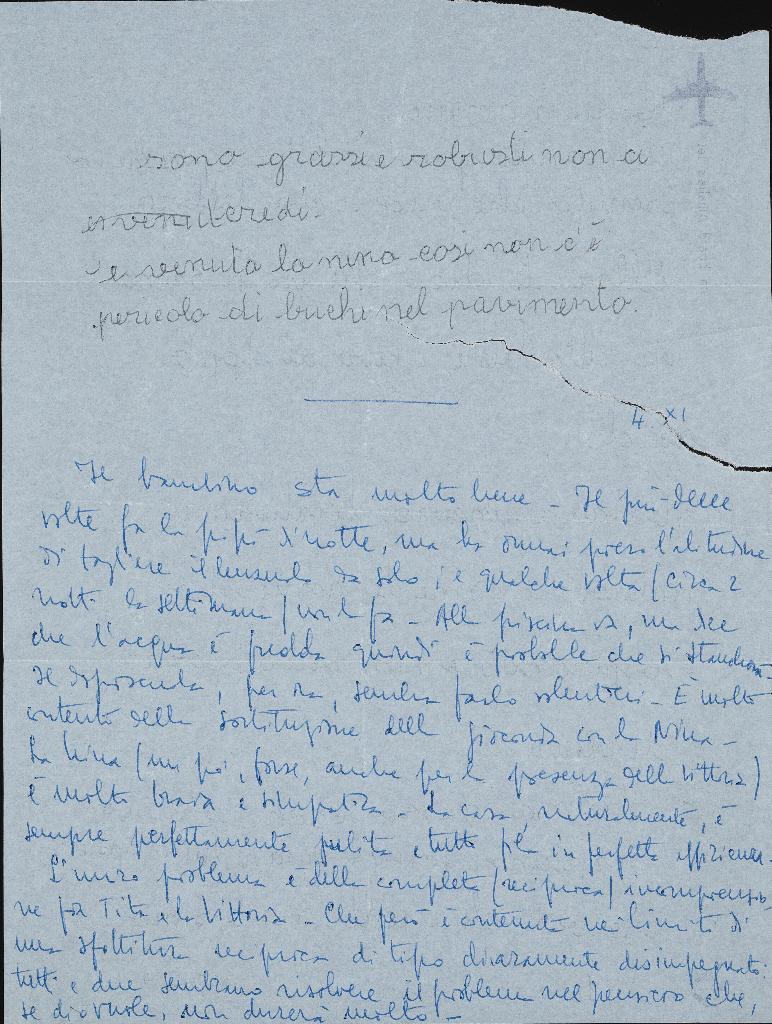 sono grassi e robusti non ci
credi.
e venuta la nina cosi non c'è
pericolo di buchi nel pavimento.
4 XI
Il bambino sta molto bene - Il più delle
volte fa la pipì di notte, ma ha ormai preso l'abitudine
di togliere il lenzuolo da solo; e qualche volta (circa 2
notti la settimana) non la fa - Alla piscina va, ma dice
che l'acqua è fredda quindi è probabile che si stancherà
Il doposcuola, per ora, sembra farlo volentieri - È molto
contento della sostituzione della Gioconda con la Nina -
La Nina (un po', forse, anche per la presenza della Vittoria)
è molto brava e simpatica - La casa, naturalmente, è
sempre perfettamente pulita e tutto fila in perfetta efficienza.
L'unico problema è della completa (reciproca) incomprensio-
ne fra Tita e la Vittoria - Che però è contenuta nei limiti di
una sfottitura reciproca di tipo chiaramente disimpegnato:
tutti e due sembrano risolvere il problema nel pensiero che,
se dio vuole, non durerà molto -